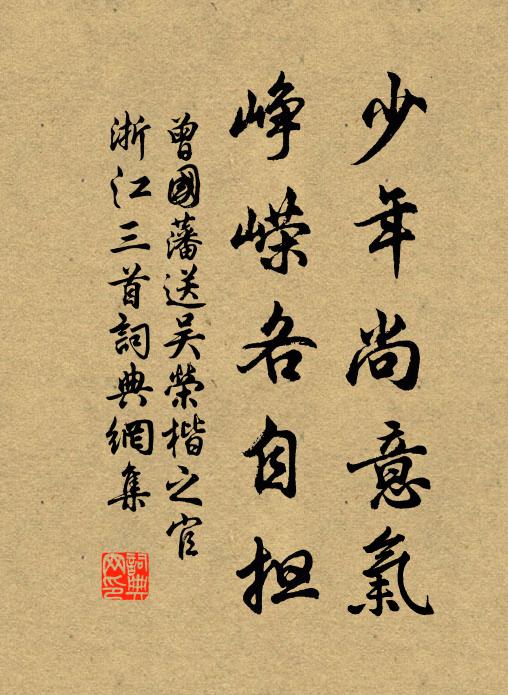 少年尚意氣
峥嶸各自担
曾國藩送吴榮楷之官
浙江三首詞典網集
詞典
网印